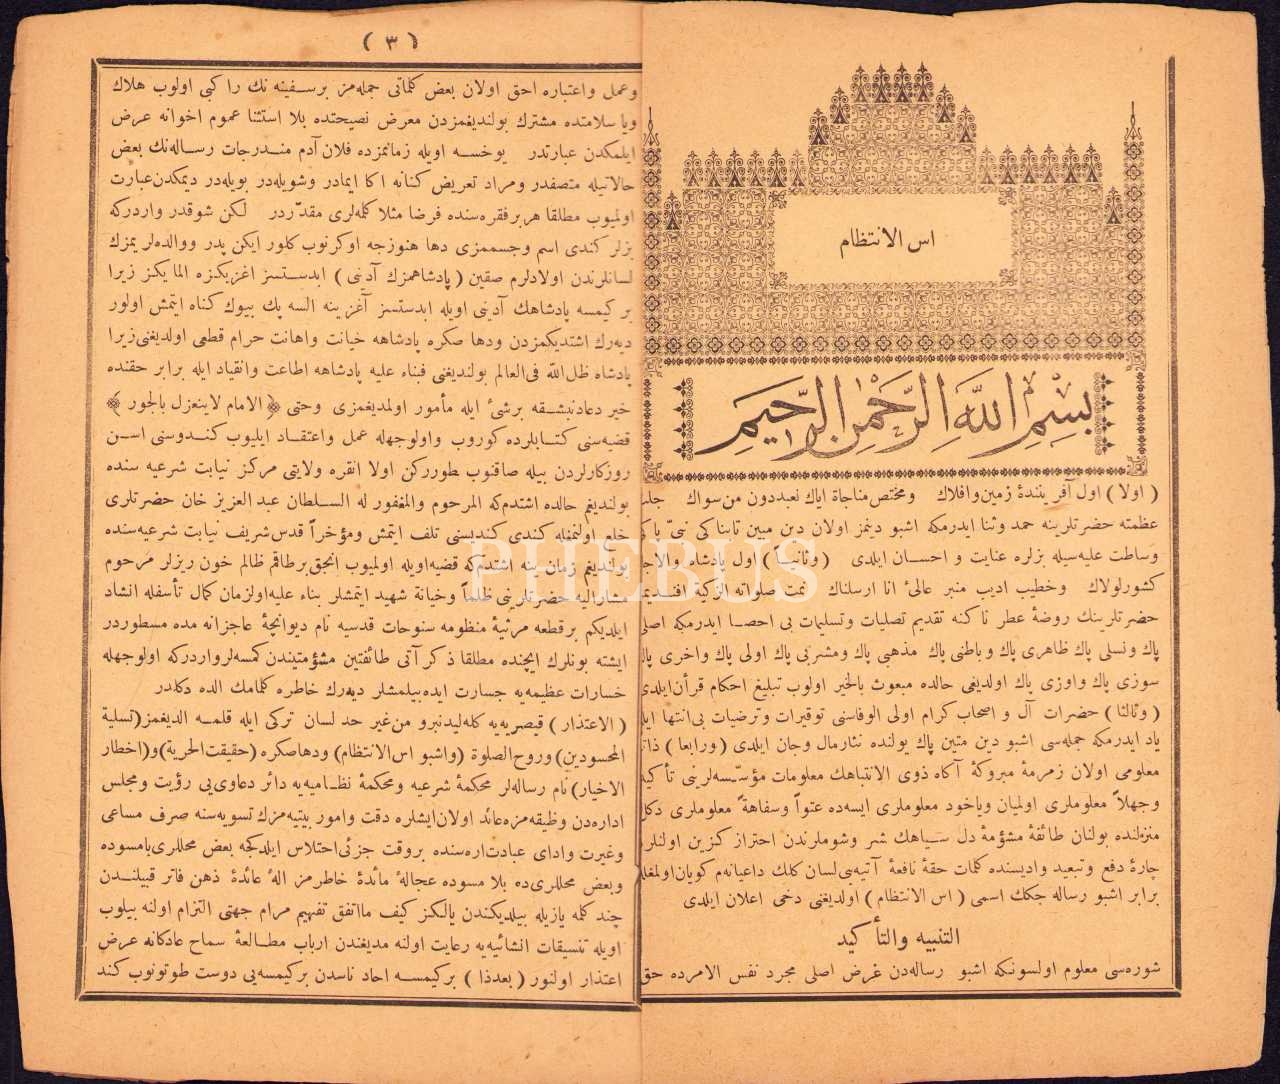 اس الانتظام
بسم الله الرحمن الرحيم
( اولا ) اول آفرینندهٔ زمین وافلاك ومختص مناجاة ایاك نعبددون من سواك
عظمته حضرتلرینه حمد وثنا ایدرمكه اشبو دینمز اولان دین مبین تابناكی نبیّ
وساطت علیه سیله بزلره عنایت و احسان ایلدی ( وثانیاً ) اول پادشاه
كشورلولاك وخطیب ادیب منبر عالیٔ انا ارسلناك نمت صلواته الزكیه
حضرتلرینك روضهٔ عطر ناكنه تقدیم تصلیات وتسلیمات بی احصا ایدرمكه
پاك ونسلی پاك ظاهری پاك وباطنی پاك مذهبی پاك ومشربی پاك اولی پاك واخری
سوزی پاك واوزی پاك اولدیغی حالده مبعوث بالخیر اولوب تبلیغ احكام قرآن ایلدی
( وثالثا ) حضرات آل و اصحاب كرام اولی الوفاسنی توقیرات وترضیات بی انتها
یاد ایدرمكه جمله سی اشبو دین متین پاك یولنده نثارمال وجان ایلدی ( ورابعا )
معلومی اولان زمرهٔ مبروكهٔ آكاه ذوی الانتباهك معلومات مؤسّسه لرینی
وجهلاً معلوملری اولمیان ویاخود معلوملری ایسه ده عتواً وسفاههً معلوملری
منزلنده بولنان طائفهٔ مشؤمهٔ دل سیاهك شر وشوملرندن احتراز كزین
چارهٔ دفع وتبعید وادیسنده كلمات حقهٔ نافعهٔ آتیه یی لسان كلك داعیانه م
برابر اشبو رساله جكك اسمی ( اس الانتظام ) اولدیغنی دخی اعلان ایلدی
التنبیه والتأكید
شوره سی معلوم اولسونكه اشبو رساله دن غرض اصلی مجرد نفس الامرده
( ٣ )
وعمل واعتباره احق اولان بعض كلماتی جمله مز برسفینه نك را كبی اولوب هلاك
ویا سلامتده مشترك بولندیغمزدن معرض نصیحتده بلا استثنا عموم اخوانه عرض
ایلمكدن عبارتدر یوخسه اویله زمانمزده فلان آدم مندرجات رساله نك بعض
حالاتیله متصفدر ومراد تعریض كنایه اكا ایمادر وشویله در بویله در دیمكدن عبارت
اولمیوب مطلقا هربرفقره سنده فرضا مثلا كله لری مقدّردر لكن شوقدر واردركه
بزلر كندی اسم وجسممزی دها هنوزجه اوكرنوب كلور ایكن پدر ووالده لریمزك
لسانلرندن اولادلرم صقین ( پادشاهمزك آدینی ) ابدستسز اغزیكزه المایكز زیرا
بر كیمسه پادشاهك آدینی اویله ابدستسز آغزینه السه پك بیوك كناه ایتمش اولور
دیه رك اشتدیكمزدن ودها صكره پادشاهه خیانت واهانت حرام قطعی اولدیغی زیرا
پادشاه ظل الله فی العالم بولندیغی فبناء علیه پادشاهه اطاعت وانقیاد ایله برابر حقنده
خیر دعادنبشقه برشیٔ ایله مأمور اولمدیغمزی وحتی ﴿ الامام لاینعزل بالجور ﴾
قضیه سنی كتابلرده كوروب واولوجهله عمل واعتقاد ایلیوب كندوسنی اسن
روزكارلردن بیله صاقنوب طورركن اولا انقره ولایتی مركز نیابت شرعیه سنده
بولندیغم حالده اشتدم كه المرحوم والمغفور له السلطان عبد العزیز خان حضرتلری
خلع اولنمغله كندی كندیسنی تلف ایتمش ومؤخراً قدس شریف نیابت شرعیه سنده
بولندیغم زمان ینه اشتدم كه قضیه اویله اولمیوب انجق برطاقم ظالم خون ریزلر مرحوم
مشارالیه حضرتلرینی ظلماً وخیانة شهید ایتمشلر بناء علیه اولزمان كمال تأسفله انشاد
ایلدیكم برقطعه مرثیهٔ منظومه سنوحات قدسیه نام دیوانچهٔ عاجزانه مده مسطوردر
ایشته بونلرك ایچنده مطلقا ذكر آتی طائفتین مشؤمتیندن كمسه لرواردركه اولوجهله
خسارات عظیمه یه جسارت ایده بیلمشلر دیه رك خاطره كلمامك الده دكلدر
( الاعتذار ) قیصریه یه كله لیدنبرو من غیر حد لسان تركی ایله قلمه الدیغمز ( تسلیة
المحسودین ) وروح الصلوة ( واشبو اس الانتظام ) ودهاصكره ( حقیقت الحریة ) و( اخطار
الاخیار ) نام رساله لر محكمهٔ شرعیه ومحكمهٔ نظامیه یه دائر دعاوی یی رؤیت ومجلس
اداره دن وظیفه مزه عائد اولان ایشلره دقت وامور بیتیه مزك تسویه سنه صرف مساعی
وغیرت وادای عبادت اره سنده بروقت جزئی اختلاس ایلدكجه بعض محللری بامسوده
وبعض محللری ده بلا مسوده عجالهٔ مائدهٔ خاطرمز الهٔ عائدهٔ ذهن فاتر قبیلندن
چند كله یازیله بیلدیكندن یالكز كیف مااتفق تفهیم مرام جهتی التزام اولنه بیلوب
اویله تنسیقات انشائیه یه رعایت اولنه مدیغندن ارباب مطالعهٔ سماح عادكانه عرض
اعتذار اولنور ( بعدذا ) بركیمسه احاد ناسدن بركیمسه یی دوست طوتونوب كند
PHEBUS